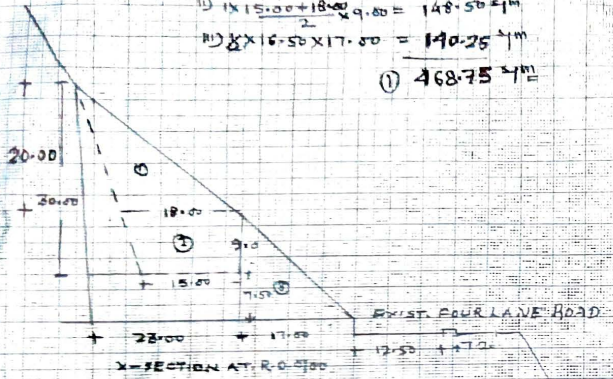 ii) 1 x 15.00+18.00/2 x 9.00 = 148.50 sqm
iii) ½ x 16.50 x 17.00 = 140.25 sqm
① 468.75 sqm
20.00
30.00
①
18.00
②
9.0
15.00
7.50 ③
EXIST. FOUR LANE ROAD
23.00
17.00
12.50
X-SECTION AT R.D